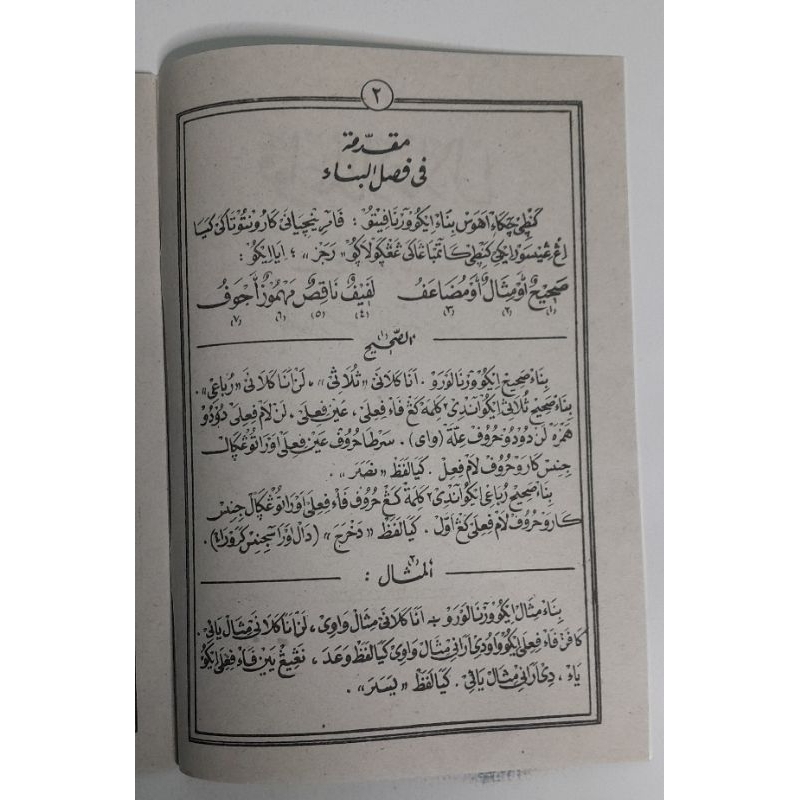 ٢
مقدّمة
فى فصل البناء
كنطي چكاء اهوس بناء ايكو ورنا فيتو : كارونتوتاكى كيا
كنطي «رجز» ؛ ايا ايكو :
صحيحٌ أو مثالٌ أو مضاعفُ لفيفٌ ناقصٌ مهموزٌ أجوفُ
(١) (٢) (٣) (٤) (٥) (٦) (٧)
(١)
الصّحيح
بناء صحيح ايكو ورنا لورو . انا كلانى «ثلاثى» ، لن انا كلانى «رباعى» .
بناء صحيح ثلاثى ايكو اندى٢ كلمة كڠ فاء فعلى ، عين فعلى ، لن لام فعلى دودو
همزه لن دودو حروف علّة (واى) . سرطا حروف عين فعلى اورا توڠݢال
جنس كارو حروف لام فعل . كيا لفظ «نصَرَ» .
بناء صحيح رباعى ايكو اندى٢ كلمة كڠ حروف فاء فعلى اورا توڠݢال جنس
كارو حروف لام فعلى كڠ اوّل . كيا لفظ «دَحْرَجَ» (دال اورا سجنس كرو راء) .
(٢)
المثال :
بناء مثال ايكو ورنا لورو + انا كلانى مثال واوى ، لن انا كلانى مثال يائى .
فاء فعلى ايكو واو دى ارانى مثال واوى كيا لفظ وَعَدَ ، نڠيڠ ين فاء فعلى ايكو
ياء ، دى ارانى مثال يائى . كيا لفظ «يَسَرَ» .